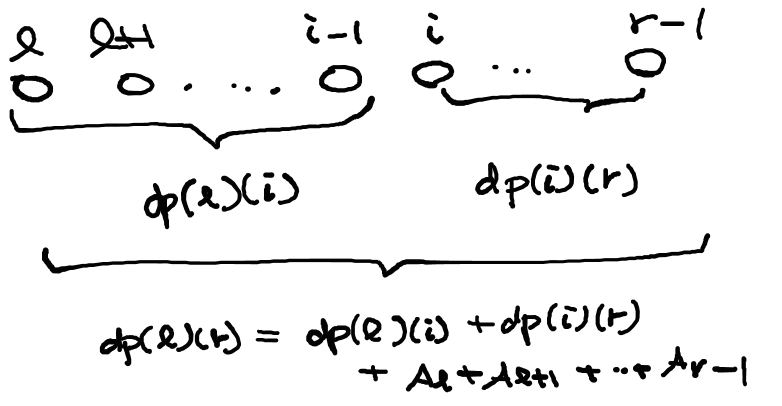 l l+1 i-1 i r-1
. .... ...
dp(l)(i) dp(i)(r)
dp(l)(r) = dp(l)(i) + dp(i)(r)
+ Al + Al+1 + ... + Ar-1